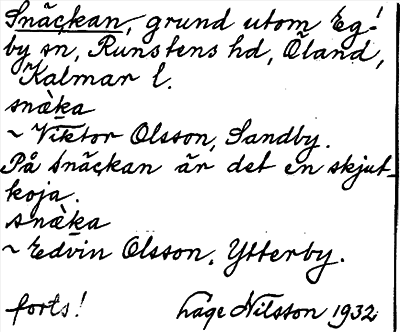 Snäckan, grund utom Eg-
by sn, Runstens hd, Öland,
Kalmar l.
snàka
~ Viktor Olsson, Sandby.
På Snäckan är det en skjut-
koja.
snàka
~ Edvin Olsson, Ytterby.
forts! Åage Nilsson 1932